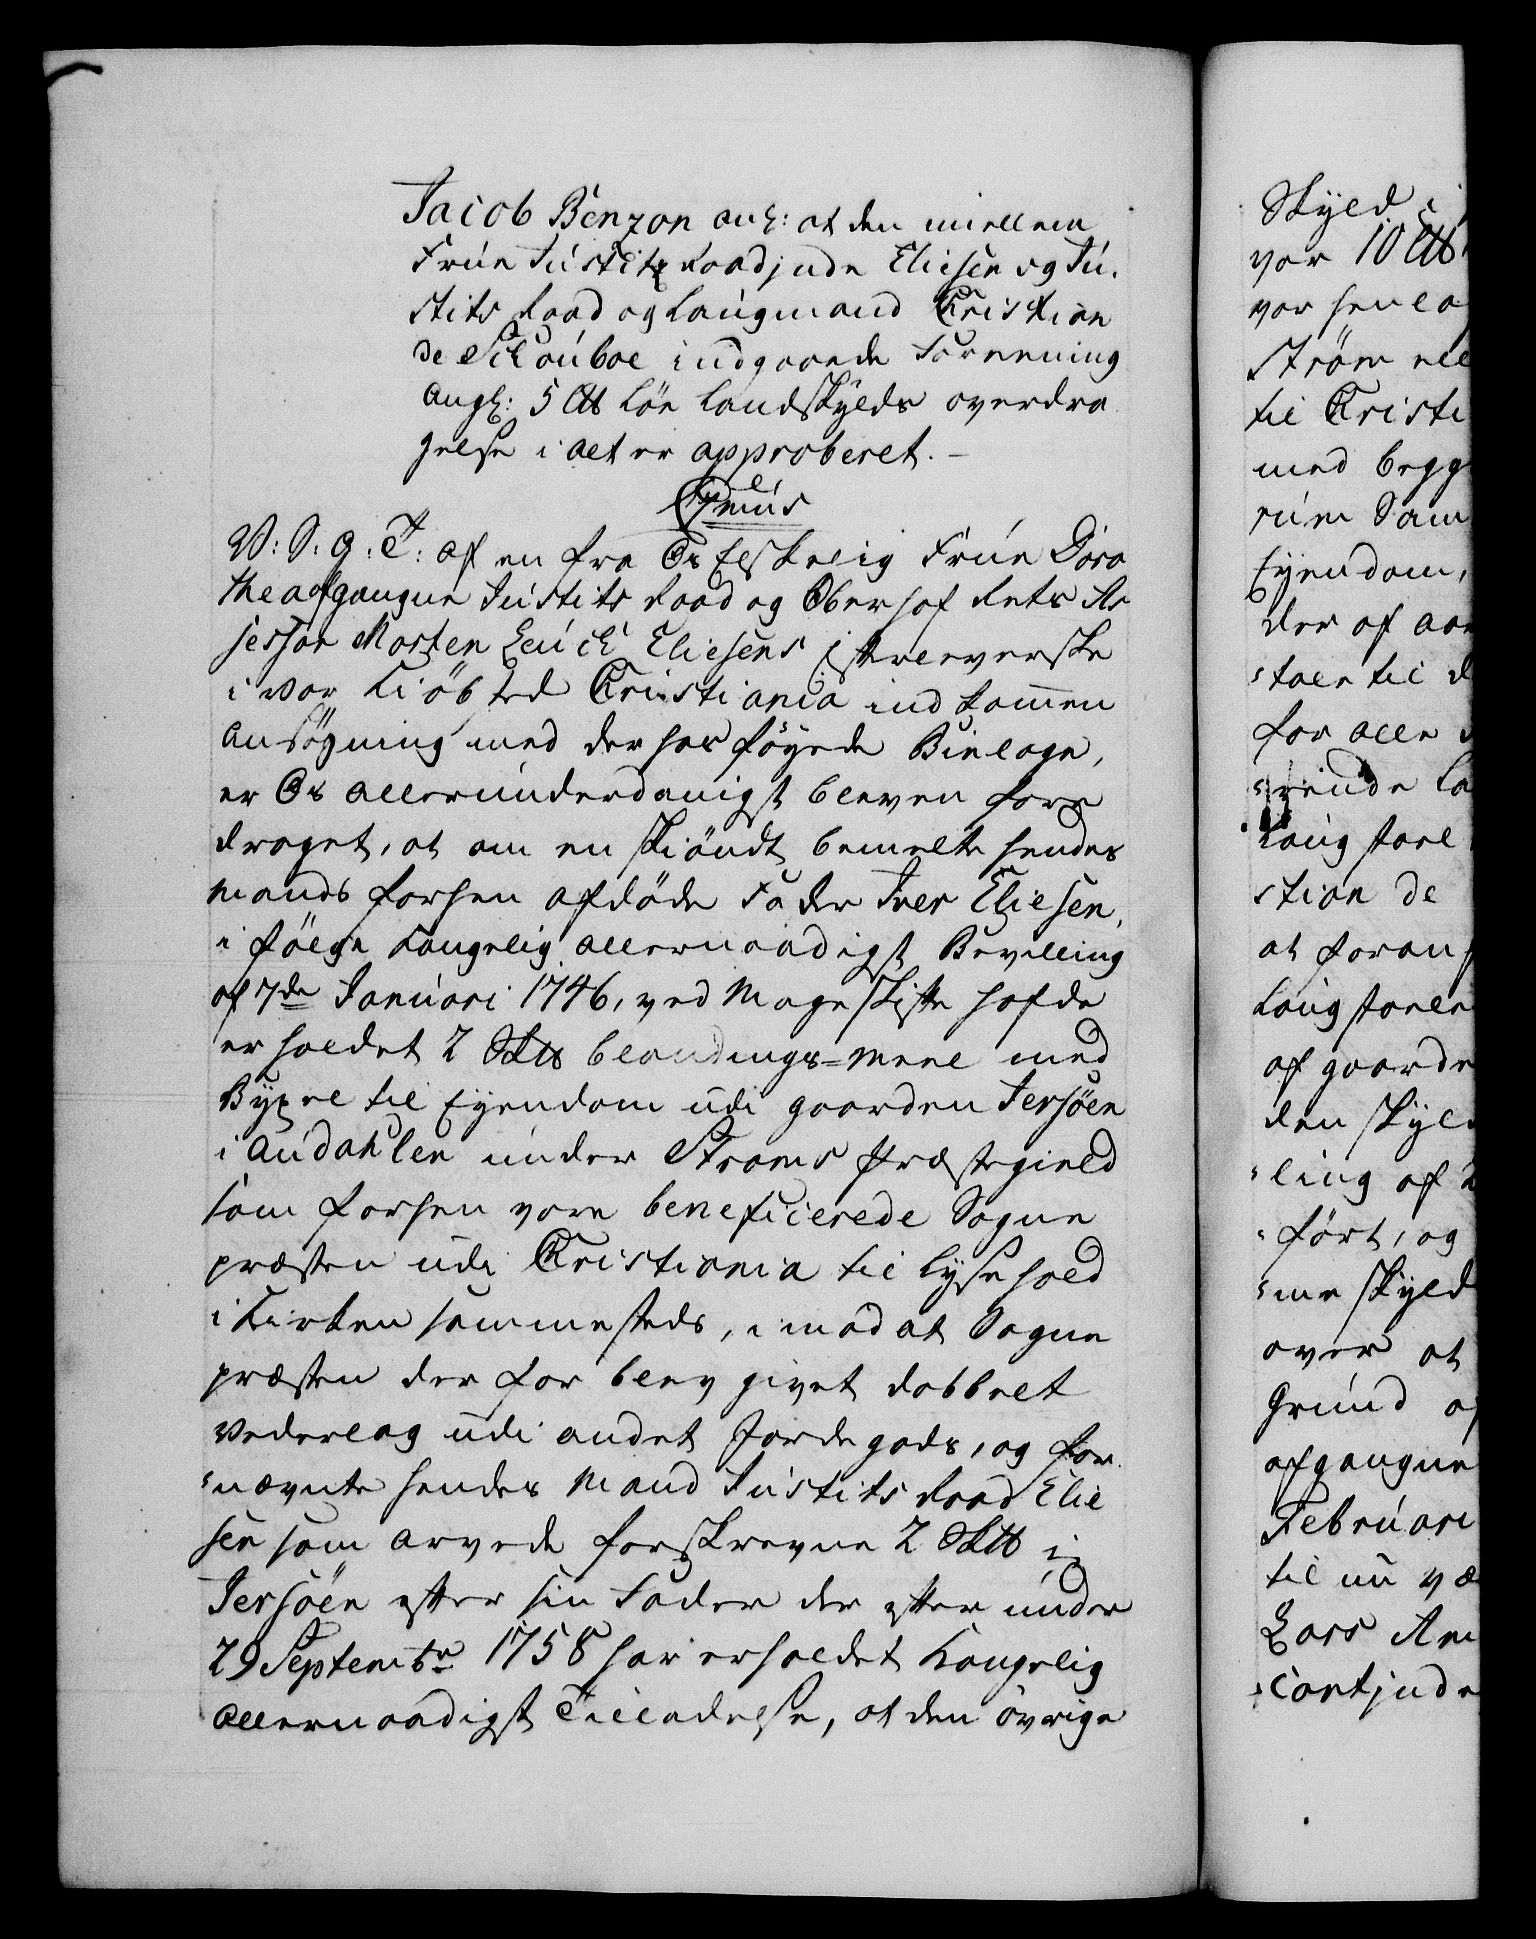 Jacob Benzon ang: at den imellem
Frue Justitz Raadinde Eliesen og Ju-
stits Raad og Laugmand Christian
de Schouboe indgaaede Forening
angl: 5 ℔ Løs Landskylds overdra
gelse i alt er approberet. —
V: S: G: T: af en fra Os Elskelig Frue Doro
thea afgangne Justits Raad og Oberhof Rets As
sessor Morten Leuch Eliesens Efterleverske
i vor Kiöbsted Christiania indkommen
Ansøgning med der hos föyede Bielage,
er Os allerunderdanigst bleven fore
draget, at om en skiöndt bemelte hendes
Mands forhen afdöde Fader Iver Eliesen,
i fölge Kongelig allernaadigst Bevilling
af 7de Januari 1746, ved Mageskifte hafde
erholdet 2 Sk℔ blandings-Meel med
Byxel til Eyendom udi gaarden Jersöen
i Audahlen under Strøms Præstegield
som forhen vare beneficerede Sogne
præsten udi Christiania til Lysehold
i Kirken sammesteds, imod at Sogne
præsten der for blev givet dobbelt
Vederlag udi andet Jordegods, og for
nævnte hendes Mand Justits Raad Elie
sen som arvede forskrevne 2 Sk℔ i
Jersöen efter sin Fader der efter under
29 Septembr 1758 har erholdet Kongelig
allernaadigst Tilladelse, at den övrige
Skyld i
var 10 ℔
var henla
Ström
til Christi
med bygge
rum Sam
Eyendom,
der af
for alle
Laug
stian de
at foran
Laugstolen
af gaarde
den Skyld
ling af 2
fört, og
me Skyld
over at
Grund
afgangne
Februari
til nu væ
Lars